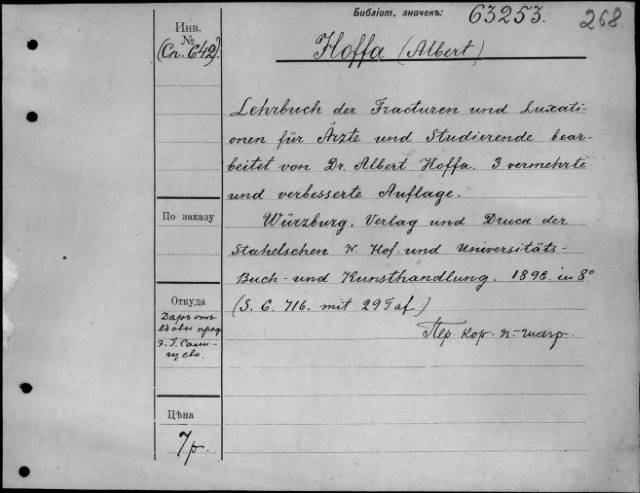 Библіот. значекъ: 63253. 268
Инв.
№
(Сп. 642).
Hoffa (Albert)
Lehrbuch der Fracturen und Luxati-
onen für Ärzte und Studierende bear-
beitet von Dr. Albert Hoffa. 3 vermehrte
und verbesserte Auflage.
Würzburg. Verlag und Druck der
Stahelschen K. Hof- und Universitäts-
Buch- und Kunsthandlung. 1898. in 8°
(S. 6. 716. mit 29 Taf.)
Пер. кор. п.-шагр.
По заказу
Откуда
Даръ отъ
вдовы проф.
Э. Г. Сали-
щева.
Цѣна
7р.